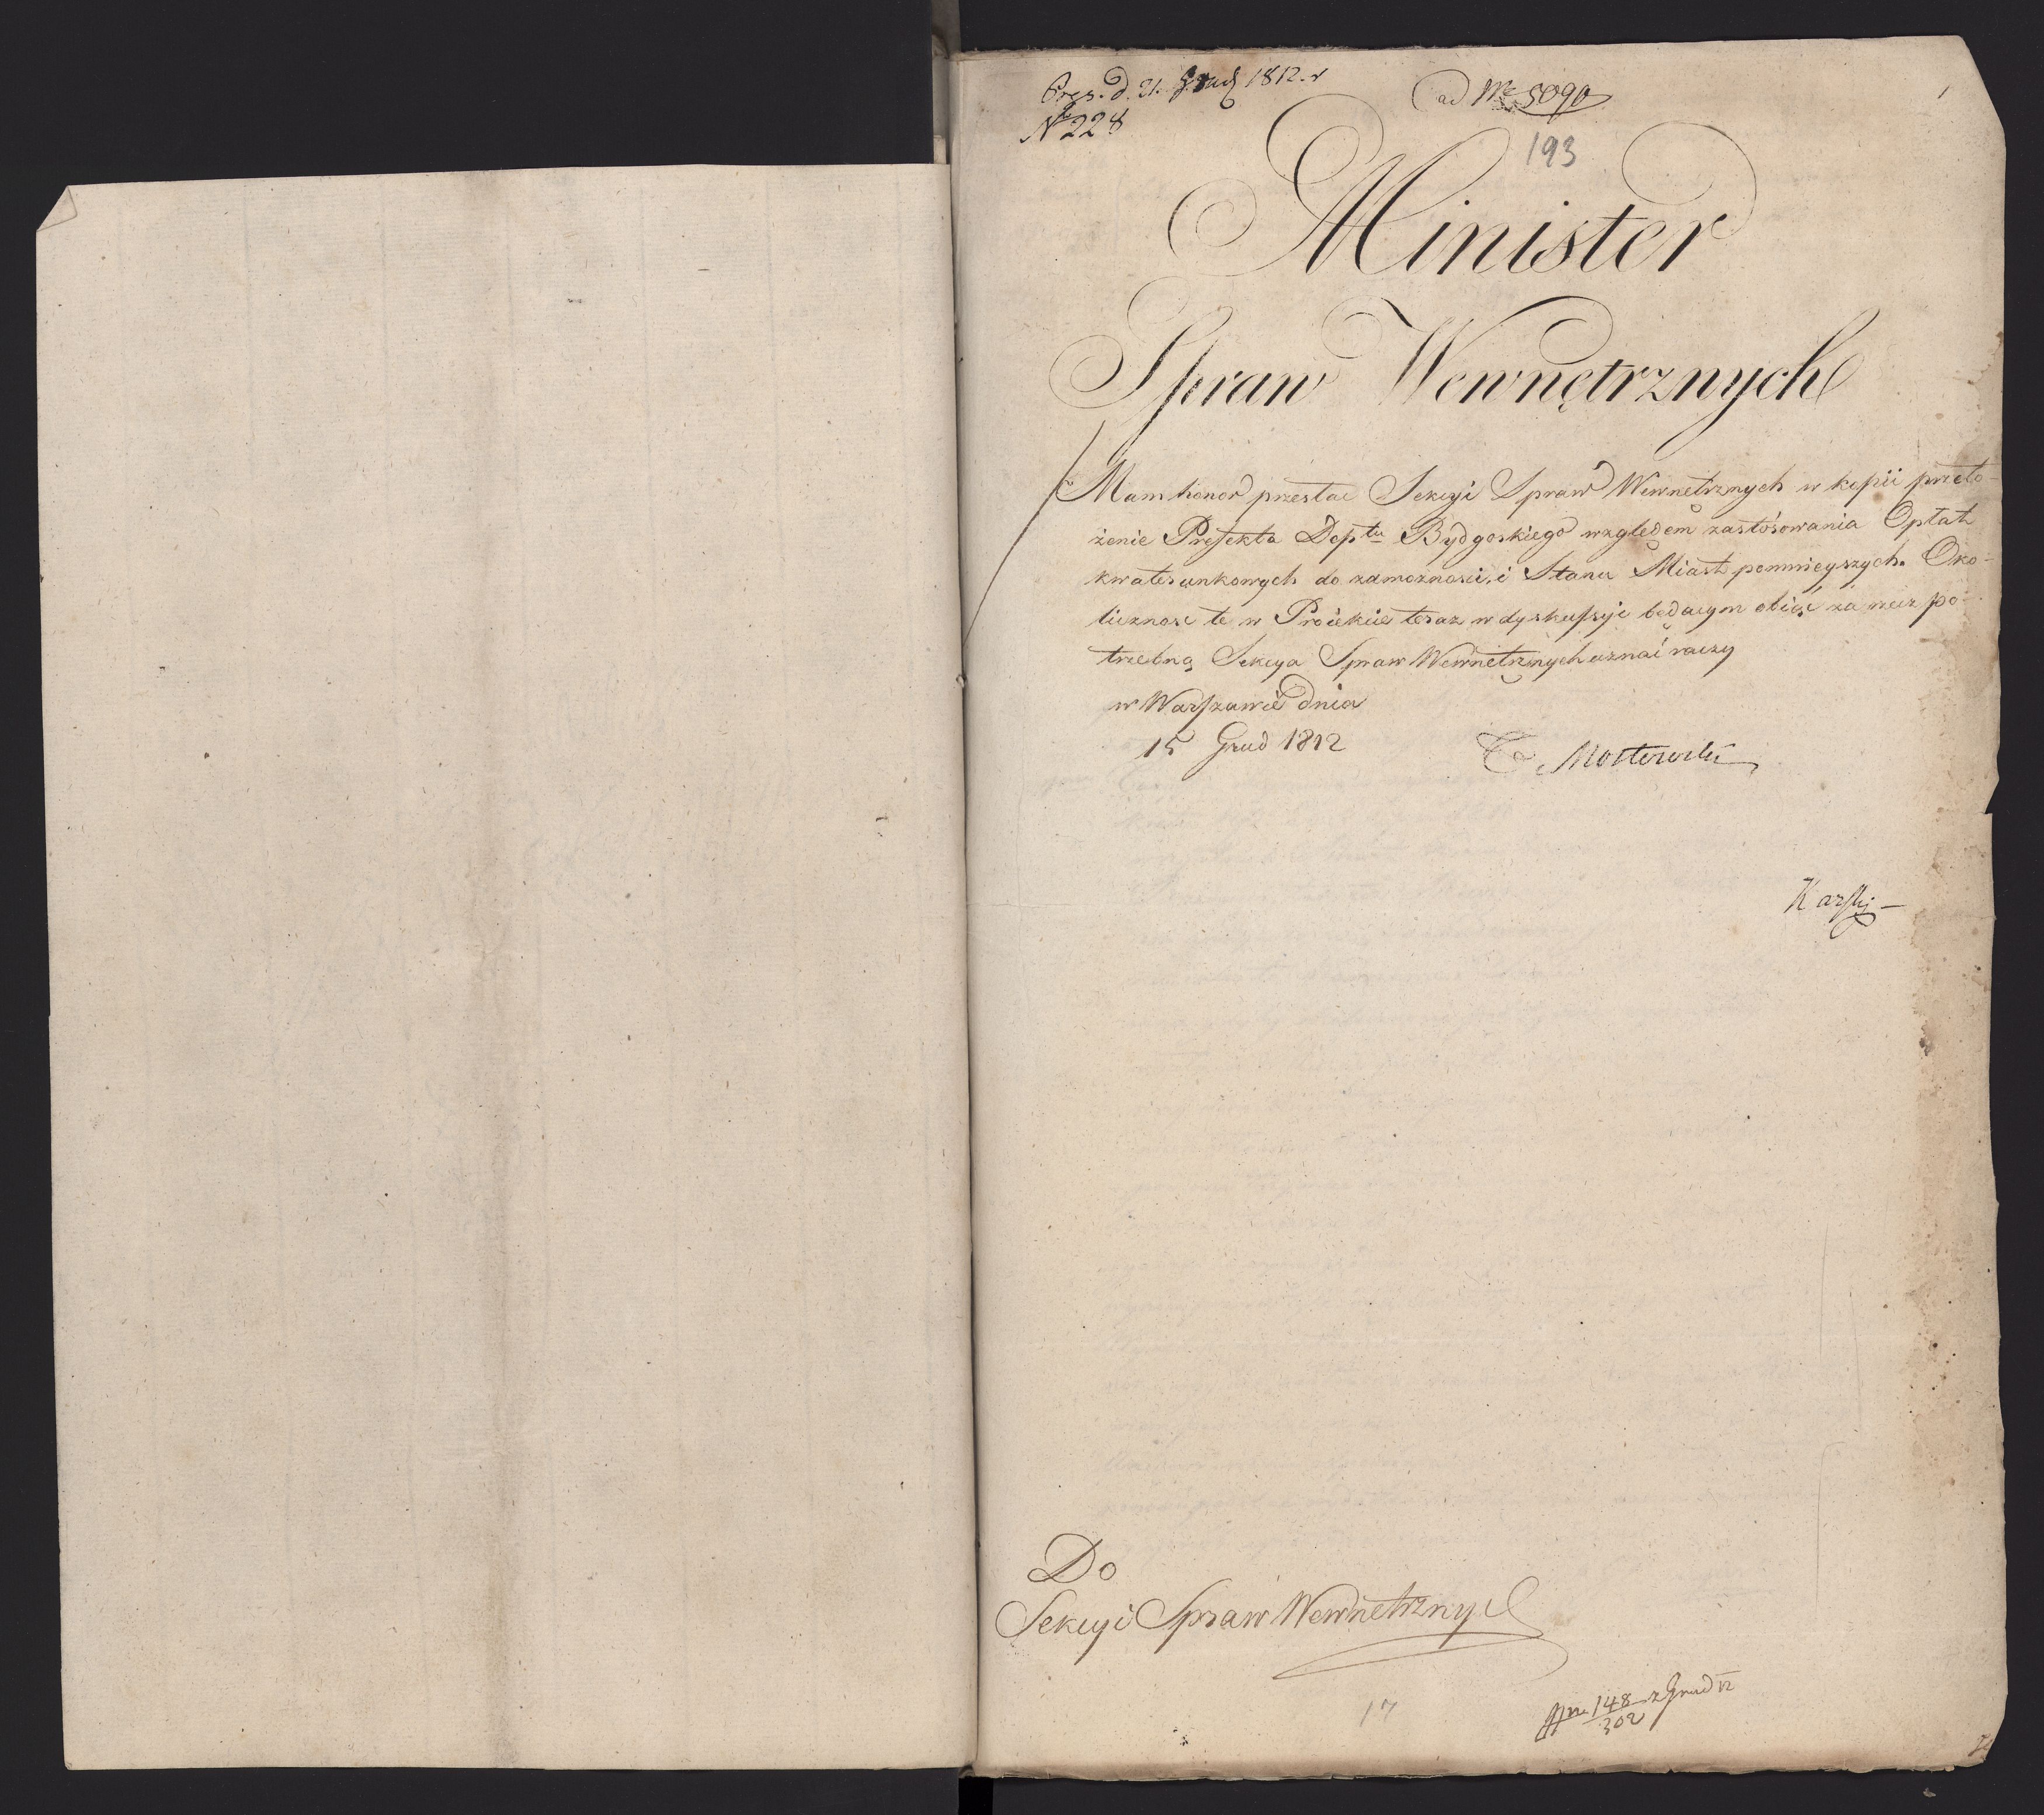 Prez. d. 21. Grud 1812. r
N 228
ad Nr 5090
1
193
Minister
Spraw Wewnętrznych
Mam honor przesłac Sekcyi Spraw Wewnętrznych w kopii przeło-
żenie Prefekta Deptu Bydgoskiego względem zastósowania Opłat
kwaterunkowych do zamożności, i Stanu Miast pomnieyszych. Oko-
licznosc tę w Proiekcie teraz w dyskussyi będącym obiąć za rzecz po-
trzebną Sekcya Spraw Wewnętrznych uznać raczy
w Warszawie dnia
15 Grud 1812
T. Mostowski
Karski
Do
Sekcyi Spraw Wewnetrznych
17
148 z Grud 12
302